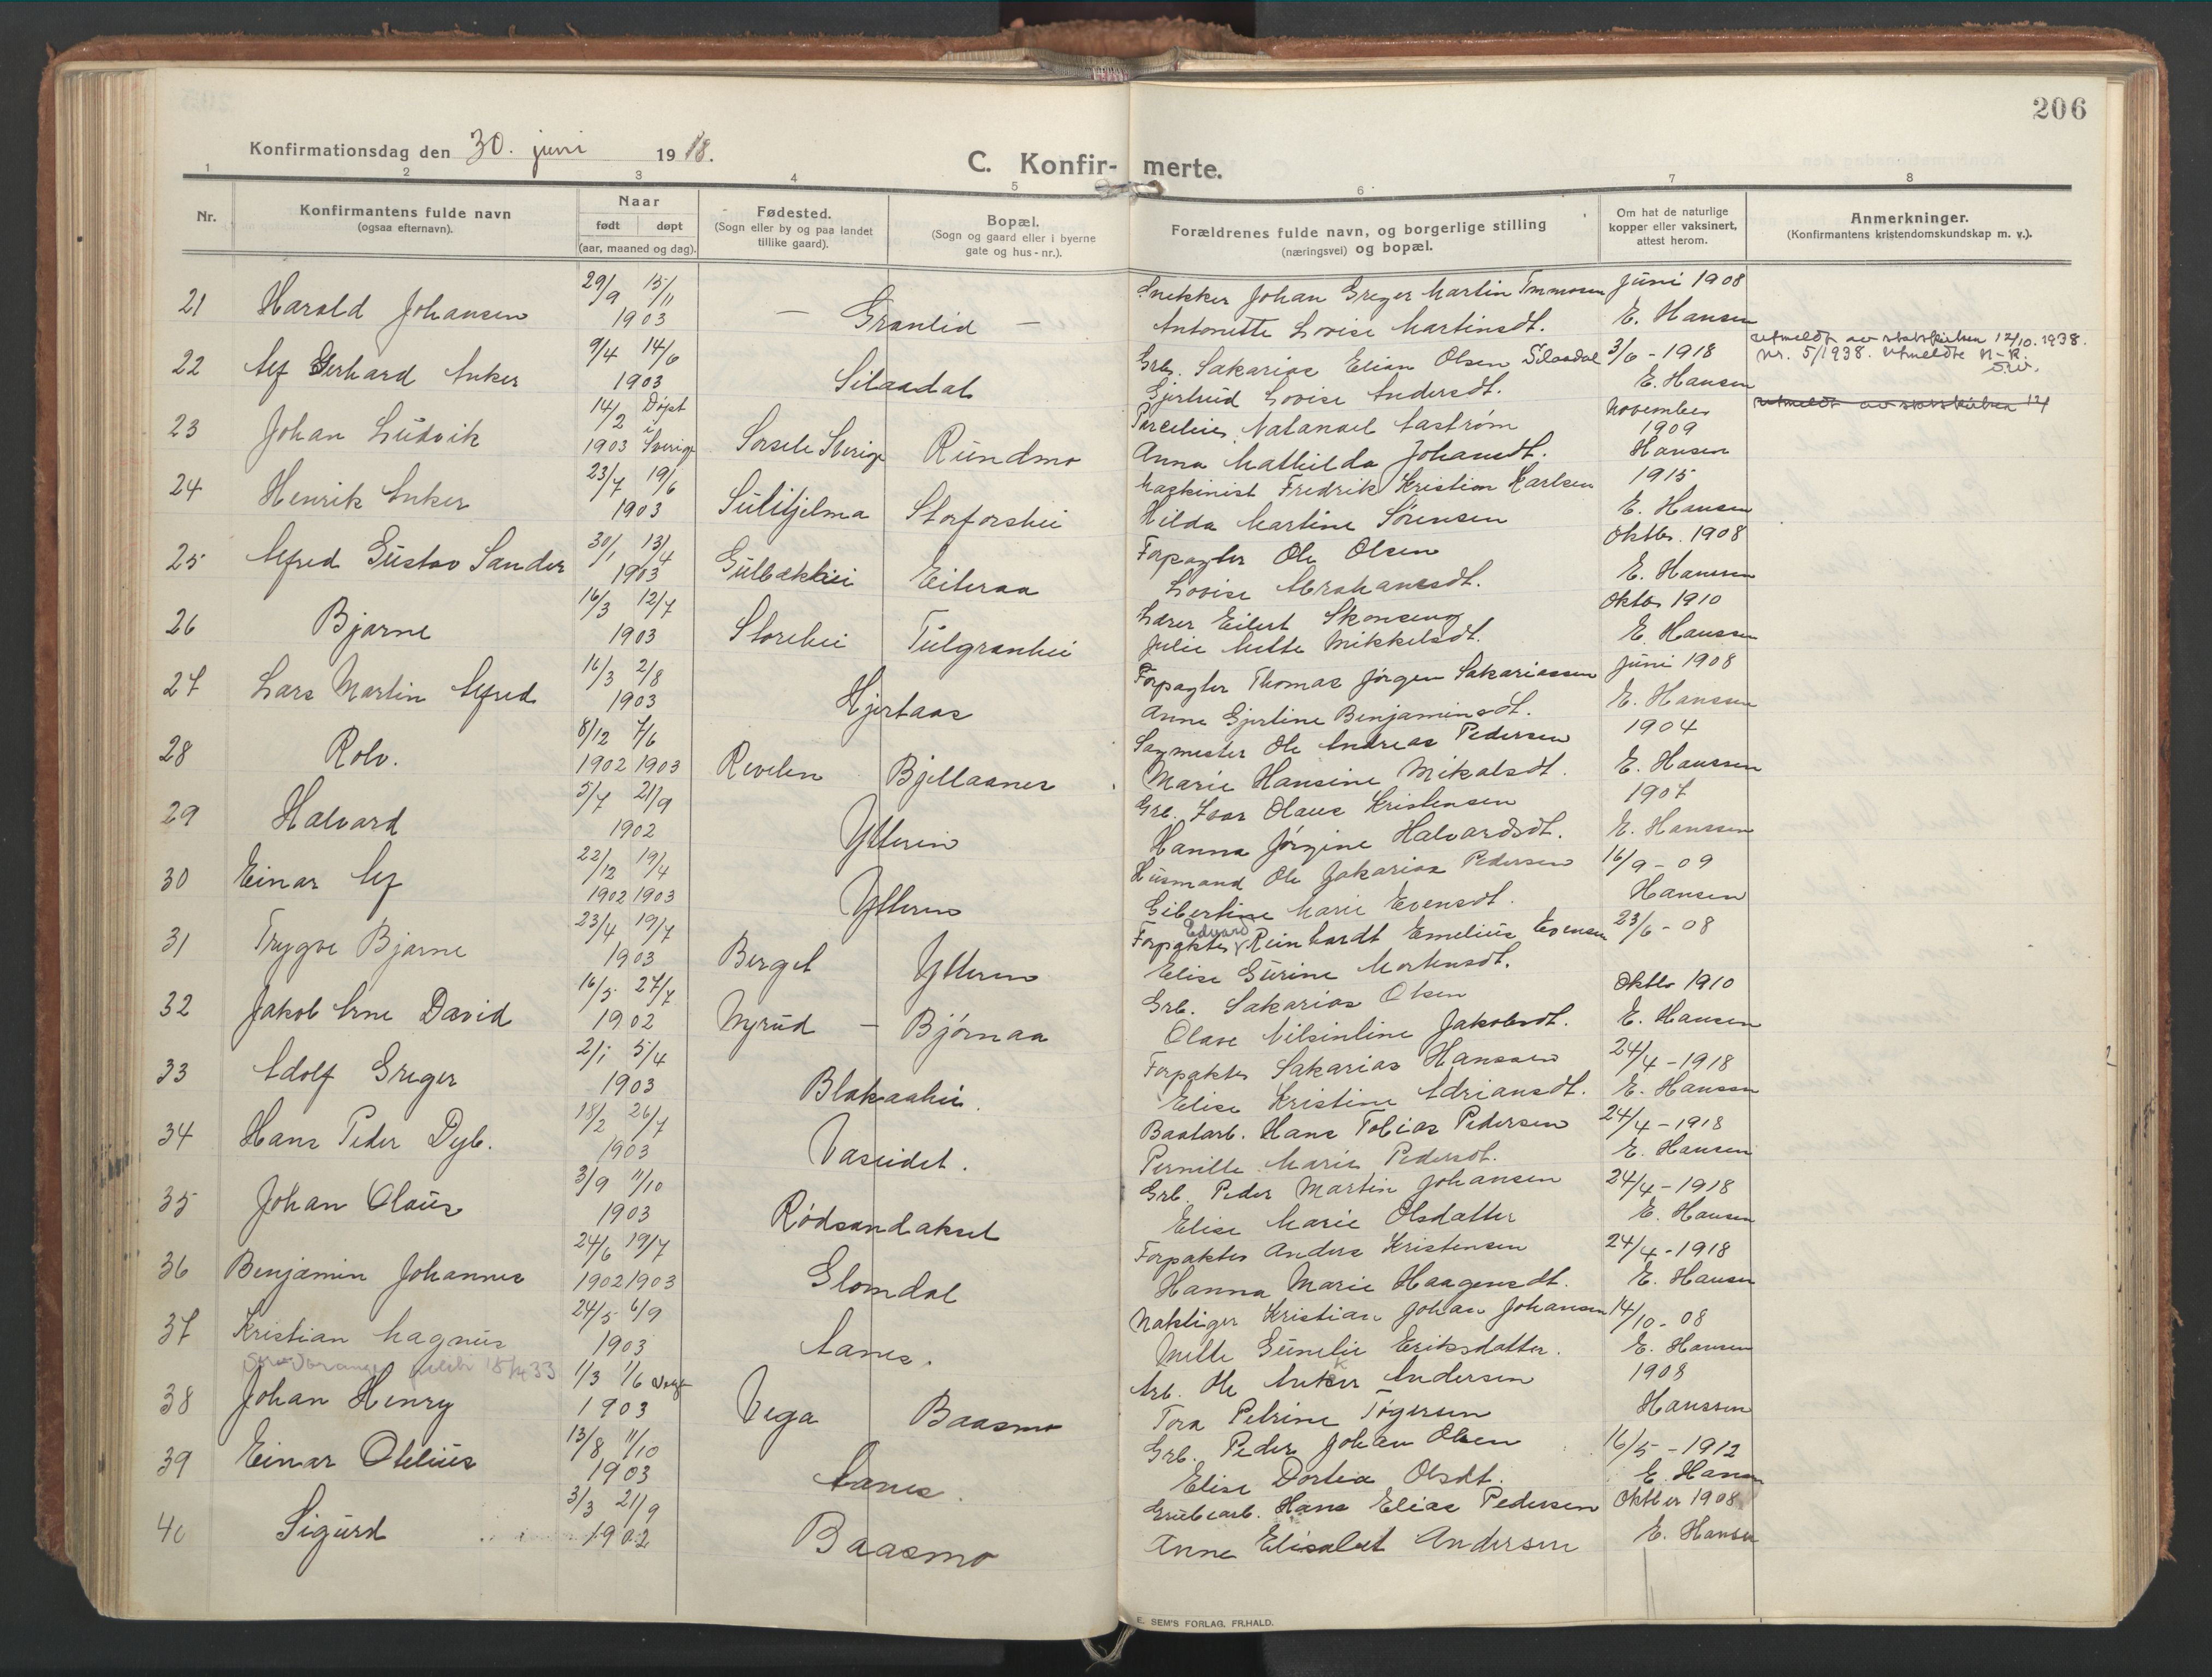 206
Konfirmationsdag den 30. juni 1918.
C. Konfir- merte.
1 2 3 4 5 6 7 8
Nr.
Konfirmantens fulde navn
(ogsaa efternavn).
Naar
født døpt
(aar, maaned og dag).
Fødested.
(Sogn eller by og paa landet
tillike gaard).
Bopæl.
(Sogn og gaard eller i byerne
gate og hus-nr.).
Forældrenes fulde navn, og borgerlige stilling
(næringsvei) og bopæl.
Om hat de naturlige
kopper eller vaksinert,
attest herom.
Anmerkninger.
(Konfirmantens kristendomskundskap m. v.).
21 Harald Johansen 29/9 15/11 1903 – Granlid –
Snekker Johan Greger Martin Tommosen Juni 1908
Antonette Lovise Martinsdt. E. Hansen
22 Alf Gerhard Anker 9/4 14/6 1903 Silaadal
Grb. Sakarias Elian Olsen Silaadal 3/6 - 1918
utmeldt av statskirken 12/10. 1938.
nr. 5/1938. utmeldte N-R.
Gjertrud Lovise Andersdt. E. Hansen
utmeldt av statskirken 12/
23 Johan Ludvik 14/2 Døpt i 1903 Sverige Sorsele Sverige Rundmo
Parcelier Natanael Aastrøm November 1909
Anna Mathilda Johansdt. Hansen
24 Henrik Anker 23/7 19/6 1903 Sulitjelma Storforshei
Maskinist Fredrik Kristian Karlsen 1915
Hilda Martine Sørensen E. Hansen
25 Alfred Gustav Sander 30/1 13/4 1903 Gulbækhei Eiteraa
Forpagter Ole Olsen Oktbr. 1908
Lovise Abrahamsdt. E. Hanssen
26 Bjarne 16/3 12/7 1903 Storehei Tulgranhei
Lærer Eilert Skonseng Oktbr 1910
Julie Mette Mikkelsdt. E. Hanssen
27 Lars Martin Alfred 16/3 2/8 1903 Hjertaas
Forpagter Thomas Jørgen Sakariassen Juni 1908
Anne Gjertine Benjaminsdt. E. Hanssen
28 Rolv. 8/12 7/6 1902 1903 Revelen Bjellaanes
Sagmester Ole Andreas Pedersen 1904
Marie Hansine Mikalsdt. E. Hanssen
29 Halvard 5/7 21/9 1902 Ytteren
Grb. Ivar Olaus Kristensen 1907
Hanna Jørgine Halvardsdt. E. Hanssen
30 Einar Alf 22/12 19/4 1902 1903 Ytteren
Husmand Ole Zakarias Pedersen 16/9 - 09
Gibertine Marie Evensdt. Hansen
31 Trygve Bjarne 23/4 19/7 1903 Berget Ytteren
Edvard
Forpakter Reinhardt Emelius Evensen 23/6 - 08
Elise Gurine Mortensdt.
32 Jakob Arne David 16/5 27/7 1902 Nyrud – Bjørnaa
Grb. Sakarias Olsen Oktbr 1910
Olave Nilsinline Jakobsdt. E. Hansen
33 Adolf Greger 2/1 5/4 1903 Blakaahei.
Forpakter Sakarias Hanssen 24/4 - 1918
Elise Kristine Adriansdt. E. Hanssen
34 Hans Peder Dyb. 18/2 26/7 1903 Vaseidet.
Baatarb. Hans Tobias Pedersen 24/4 - 1918
Pernille Marie Pedersdt. E. Hansen
35 Johan Olaus 3/9 11/10 1903 Rødsandaksel
Grb. Peder Martin Johansen 24/4 - 1918
Elise Marie Olsdatter E. Hansen
36 Benjamin Johannes 24/6 19/7 1902 1903 Glomdal
Forpakter Anders Kristensen 24/4 - 1918
Hanna Marie Haagensdt. E. Hansen
37 Kristian Magnus 24/5 6/9 1903 Aanes.
Nakliger Kristian Johan Johansen 14/10 - 08
Mette Gunelie Eriksdatter. E. Hansen
38 Johan Henry 1/3 1/6 1903 Vega Baasmo
Arb. Ole Anker Andersen 1908
Tora Petrine Tøgersen Hanssen
39 Einar Otelius 13/8 11/10 1903 Aanes.
Grb. Peder Johan Olsen 16/5 - 1912
Elise Dortea Olsdt. E. Hansen
40 Sigurd 3/3 21/9 1902 Baasmo
Grubearb. Hans Elias Pedersen Oktber 1908
Anne Elisabet Andersen E. Hansen
E. SEM'S FORLAG, FR.HALD.